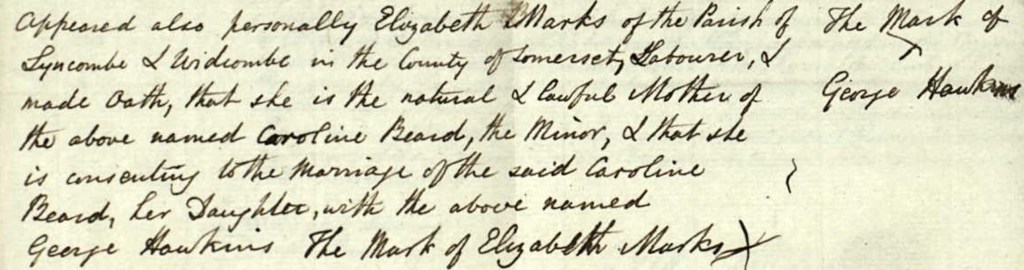 Appeared also personally Elizabeth Marks of the Parish of
Lyncombe & Widcombe in the County of Somerset, Labourer, &
made Oath, that she is the natural & lawful Mother of
the above named Caroline Beard, the Minor, & that she
is consenting to the Marriage of the said Caroline
Beard, her Daughter, with the above named
George Hawkins The Mark of Elizabeth Marks
The Mark of
George Hawkins